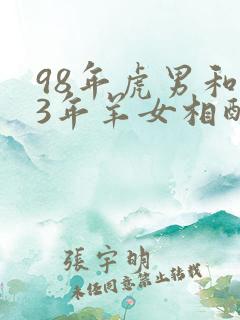 98年虎男和
3年羊女相配
張宇明
未经同意禁止转载